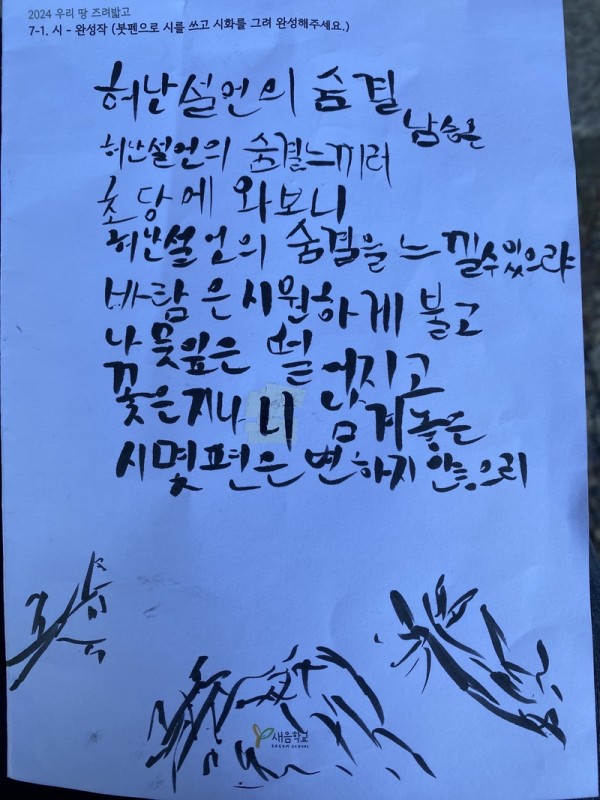 2024 우리 땅 즈려밟고
7-1. 시 - 완성작 (붓펜으로 시를 쓰고 시화를 그려 완성해주세요.)
허난설헌의 숨결
남승온
허난설헌의 숨결느끼러
초당에 와보니
허난설헌의 숨결을 느낄수있으랴
바람은 시원하게 불고
나뭇잎은 떨어지고
꽃은지나니 남겨놓은
시몇편은 변하지 않으리
새음학교